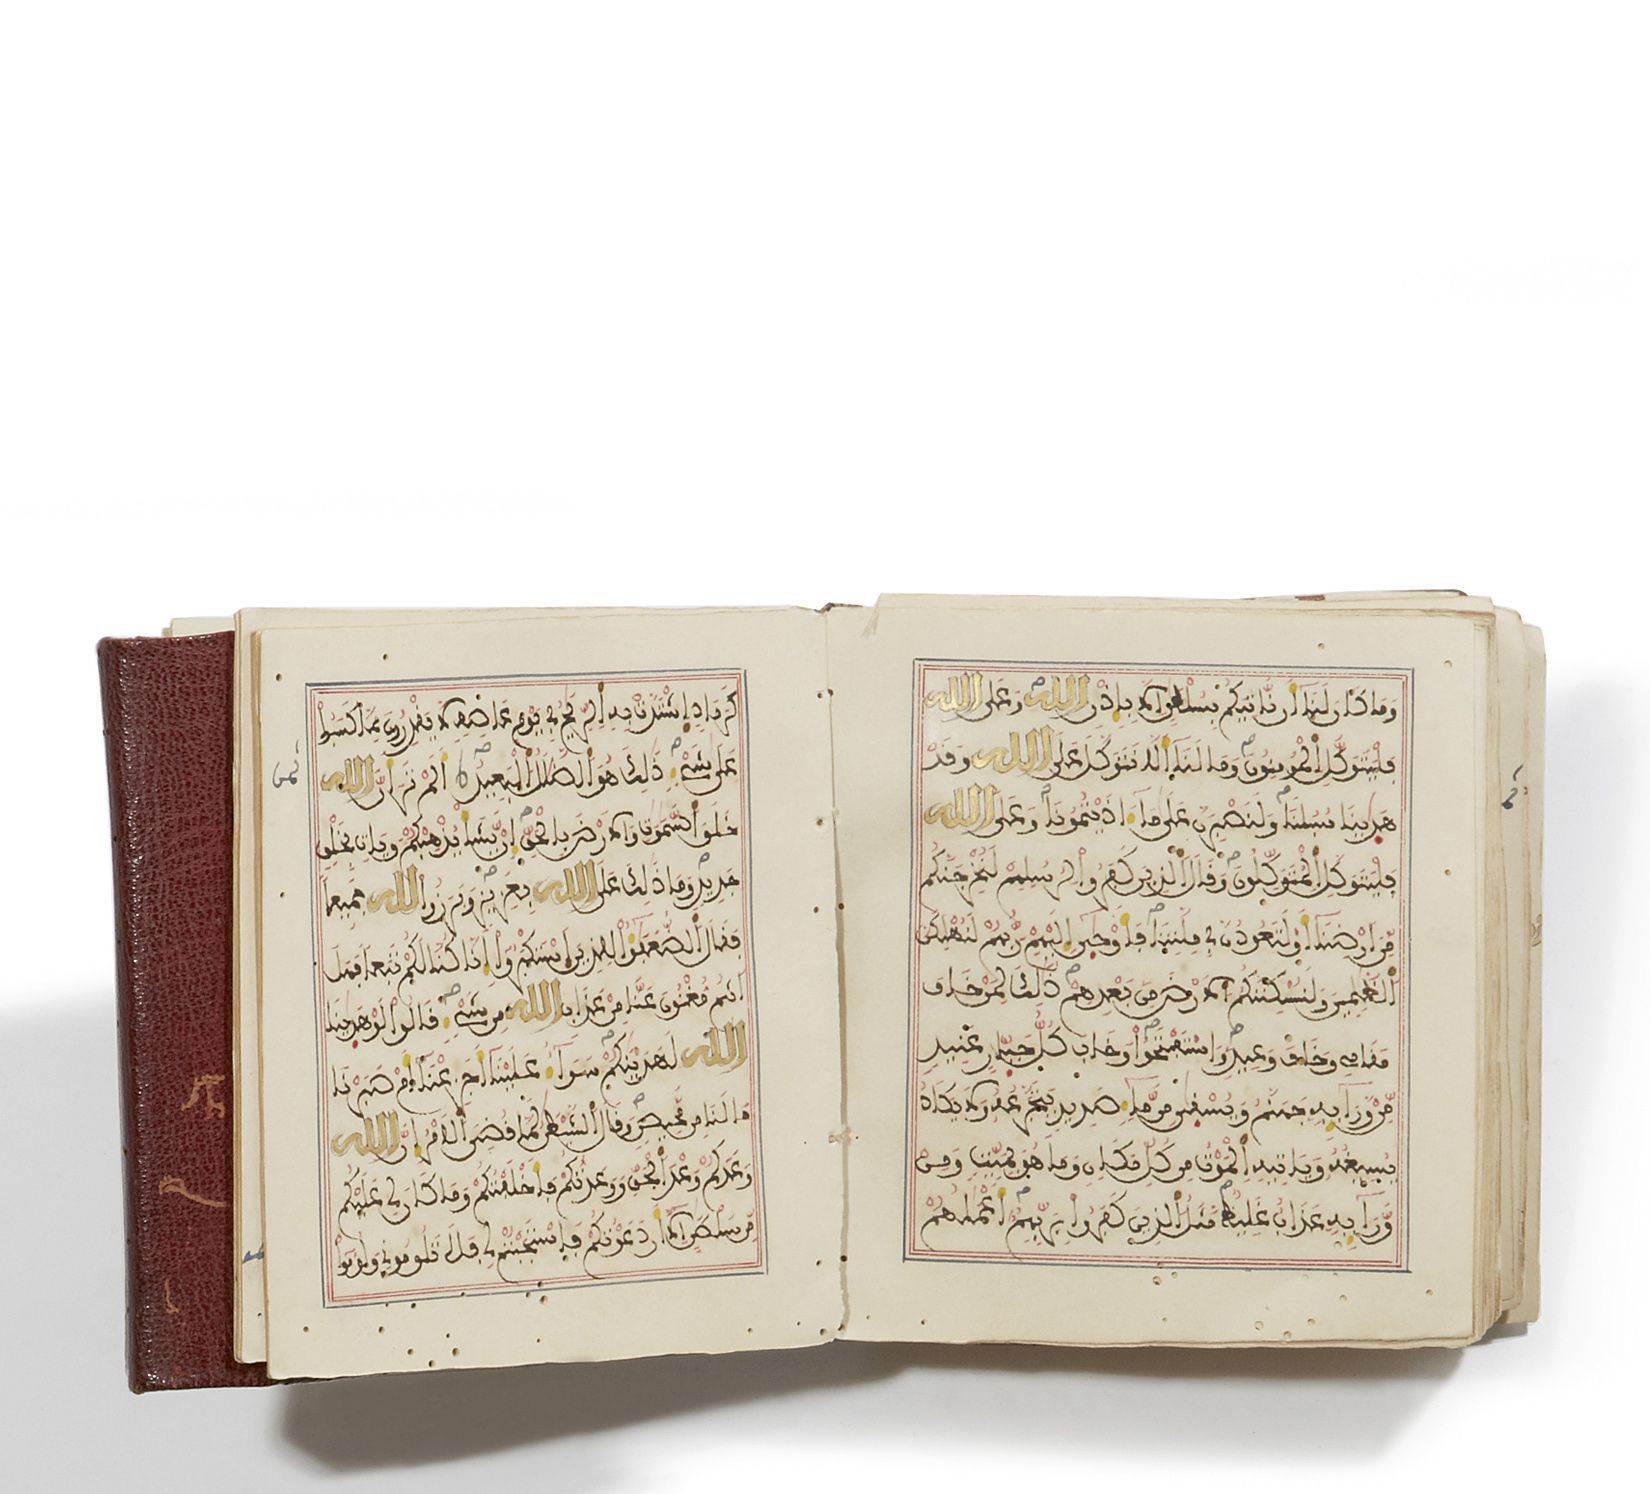 وما كان لنا أن ناتيكم بسلطن الا بإذن الله وعلى الله
فليتوكل المومنون وما لنا ألا نتوكل على الله وقد
هدينا سبلنا ولنصبرن على ما ءاذيتمونا وعلى الله
فليتوكل المتوكلون وقال الذين كفروا لرسلهم لنخرجنكم
من ارضنا أو لتعودن في ملتنا فأوحى إليهم ربهم لنهلكن
الظلمين ولنسكننكم الارض من بعدهم ذلك لمن خاف
مقامي وخاف وعيد واستفتحوا وخاب كل جبار عنيد
من ورائه جهنم ويسقى من ماء صديد يتجرعه ولا يكاد
يسيغه وياتيه الموت من كل مكان وما هو بميت ومن
ورائه عذاب غليظ مثل الذين كفروا بربهم أعملهم
كرماد اشتدت به الريح في يوم عاصف لا يقدرون مما كسبوا
على شيء ذلك هو الضلل البعيد ألم تر أن الله
خلق السموت والارض بالحق إن يشأ يذهبكم ويات بخلق
جديد وما ذلك على الله بعزيز وبرزوا لله جميعا
فقال الضعفؤا للذين استكبروا إنا كنا لكم تبعا فهل
أنتم مغنون عنا من عذاب الله من شيء قالوا لو هدينا
الله لهدينكم سواء علينا أجزعنا أم صبرنا
ما لنا من محيص وقال الشيطن لما قضي الامر إن الله
وعدكم وعد الحق ووعدتكم فأخلفتكم وما كان لي عليكم
من سلطن الا أن دعوتكم فاستجبتم لي فلا تلوموني ولوموا
ثمن